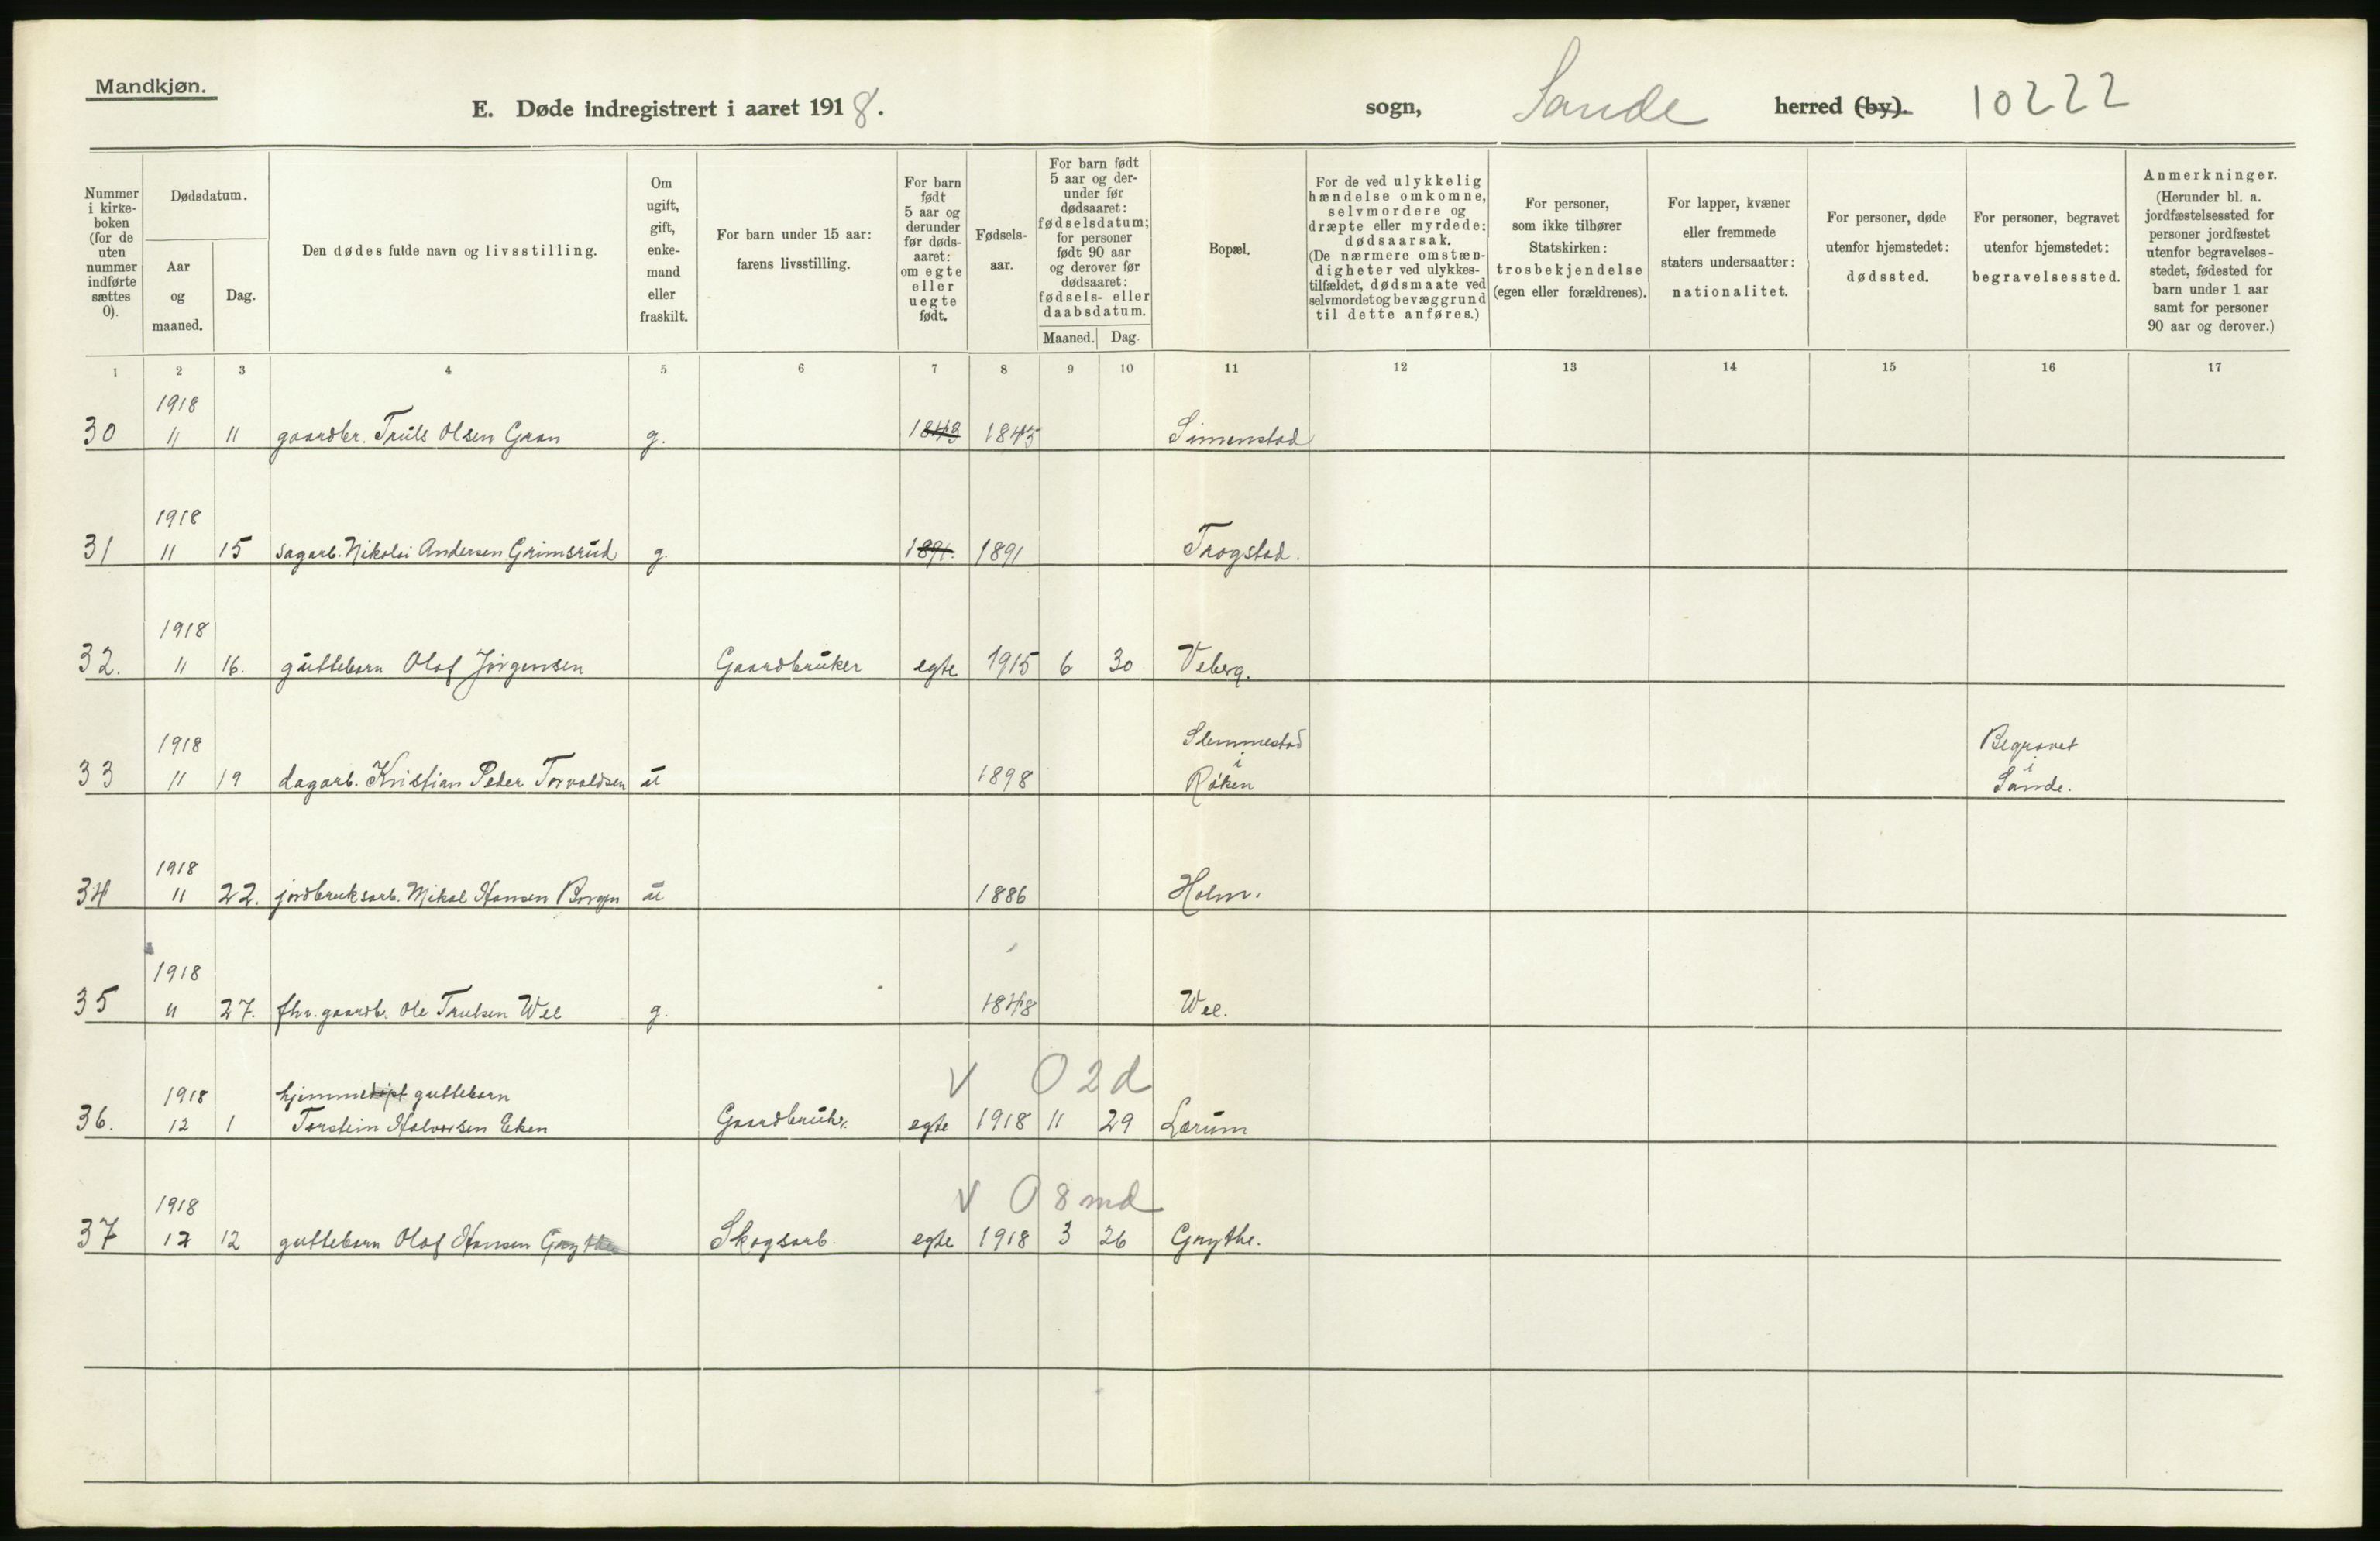 Mandkjøn.
E. Døde indregistrert i aaret 1918.
sogn, Sande herred (by). 10222
Nummer i kirke-boken (for de uten nummer indførte sættes 0).
Dødsdatum.
Aar og maaned.
Dag.
Den dødes fulde navn og livsstilling.
Om ugift, gift, enke-mand eller fraskilt.
For barn under 15 aar: farens livsstilling.
For barn født 5 aar og derunder før døds-aaret: om egte eller uegte født.
Fødsels-aar.
For barn født 5 aar og der-under før dødsaaret: fødselsdatum; for personer født 90 aar og derover før dødsaaret: fødsels- eller daabsdatum.
Maaned. Dag.
Bopæl.
For de ved ulykkelig hændelse omkomne, selvmordere og dræpte eller myrdede: dødsaarsak. (De nærmere omstæn-digheter ved ulykkes-tilfældet, dødsmaate ved selvmordet og bevæggrund til dette anføres.)
For personer, som ikke tilhører Statskirken: trosbekjendelse (egen eller forældrenes).
For lapper, kvæner eller fremmede staters undersaatter: nationalitet.
For personer, døde utenfor hjemstedet: dødssted.
For personer, begravet utenfor hjemstedet: begravelsessted.
Anmerkninger. (Herunder bl. a. jordfæstelsessted for personer jordfæstet utenfor begravelses-stedet, fødested for barn under 1 aar samt for personer 90 aar og derover.)
1 2 3 4 5 6 7 8 9 10 11 12 13 14 15 16 17
1918
30 11 11 gaardbr. Truls Olsen Gran g. 1843 1843 Simenstad
1918
31 11 15 sagarb. Nikolai Andersen Grimsrud g. 1891. 1891 Trogstad.
1918
32. 11 16. guttebarn Olaf Jørgensen Gaardbruker egte 1915 6 30 Veberg.
1918 Slemmestad Begravet
33 11 19 dagarb. Kristian Peder Torvaldsen u 1898 i Røken i Sande.
1918
34 11 22. jordbruksarb. Mikal Hansen Borgen u 1886 Holm.
1918
35 11 27. fhv. gaardb. Ole Trulsen Wel g. 1848 Wel.
V 0 2 d
1918 hjemmedøpt guttebarn
36. 12 1 Torstein Halvorsen Eken Gaardbruk. egte 1918 11 29 Lerum
V 0 8 md
1918
37 12 12 guttebarn Olaf Hansen Gnythe Skogsarb. egte 1918 3 26 Gnythe.